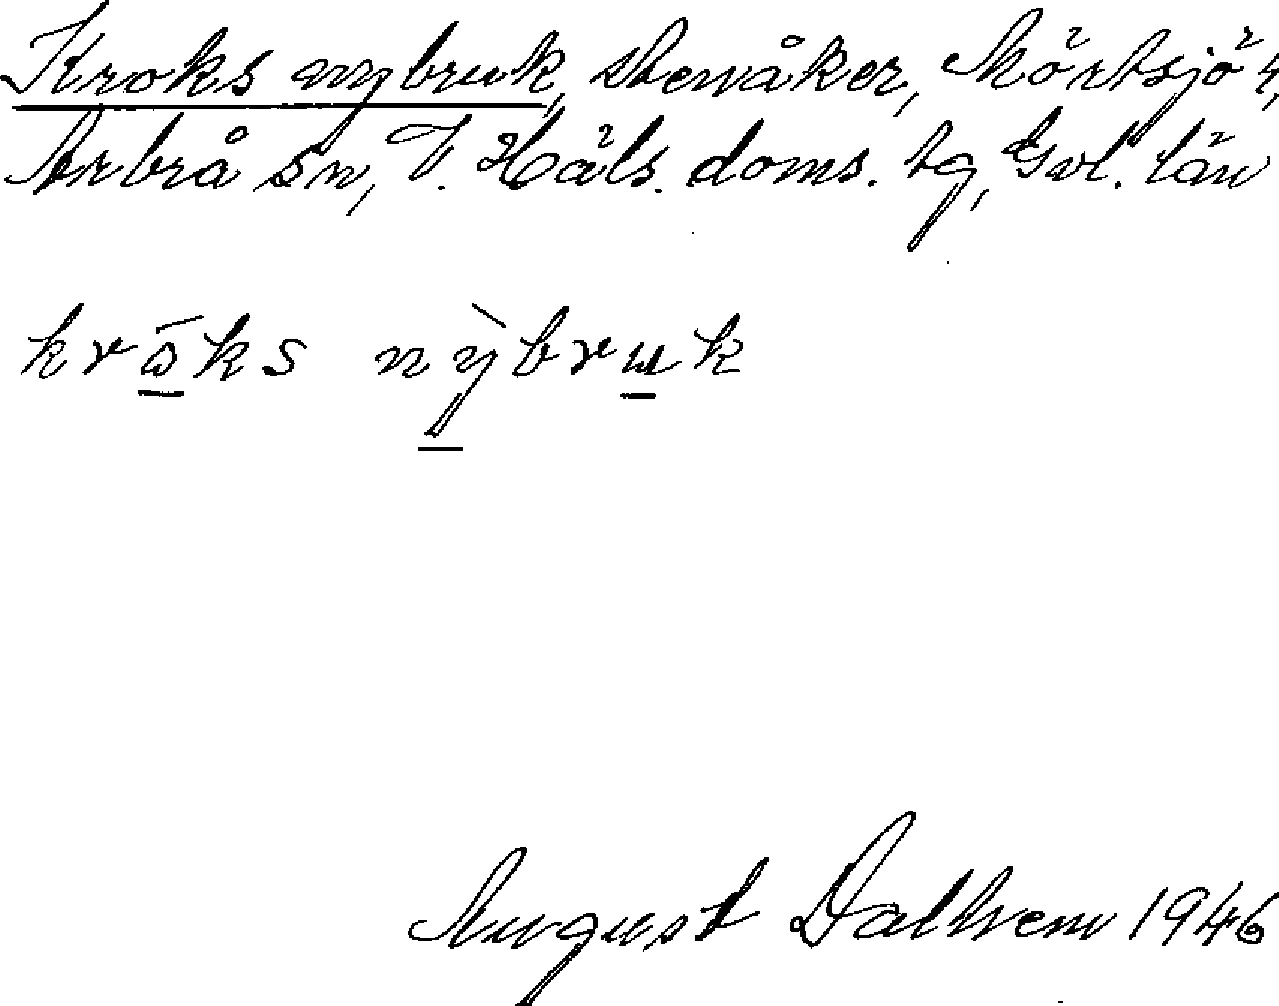 Kroks nybruk, stenåker, Mörtsjö 4,
Arbrå sn, V. Häls. doms. tg, Gvl. län
krꞷ́ks nỳbruk
August Dalhem 1946